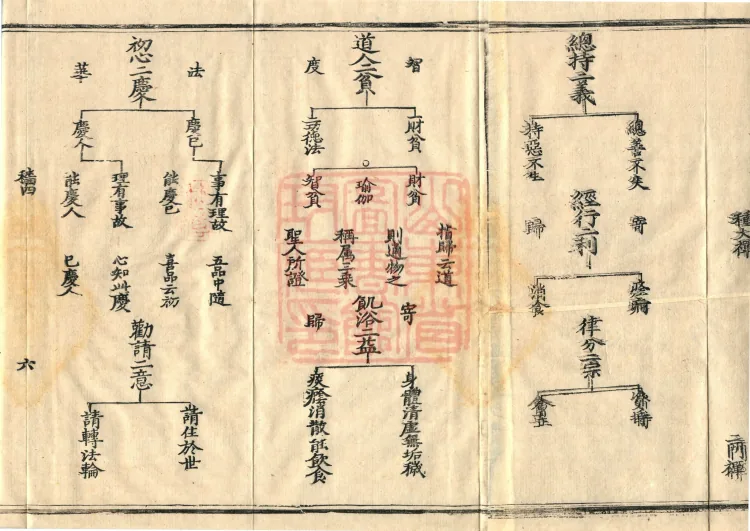 二門禅
總持二義
總善不失
持惡不生
經行二利
寄
歸
消食
律分二宗
道人二貧
智
度
財貧
功德法
財貧
瑜伽
智貧
指歸云道
則通物之
稱属三乘
聖人所證
飢浴二益
寄
歸
身體清虛無垢穢
痰癊消散能飲食
初心二慶
法
華
慶己
慶人
事有理故
能慶己
理有事故
能慶人
五品中隨
喜品云初
心知此慶
己慶人
勸請二意
請住於世
請轉法輪
六